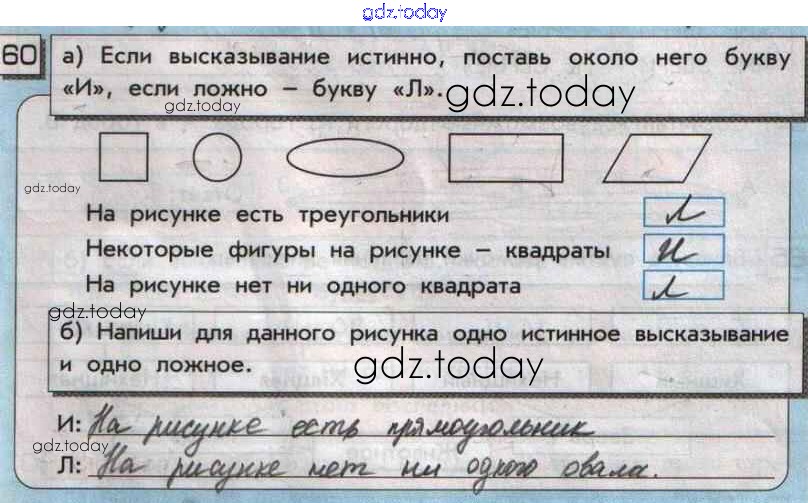 gdz.today
60 а) Если высказывание истинно, поставь около него букву
«И», если ложно – букву «Л». gdz.today
gdz.today
gdz.today
На рисунке есть треугольники Л
Некоторые фигуры на рисунке – квадраты И
На рисунке нет ни одного квадрата Л
gdz.today
б) Напиши для данного рисунка одно истинное высказывание
и одно ложное. gdz.today
И: На рисунке есть прямоугольник
gdz.today
Л: На рисунке нет ни одного овала.